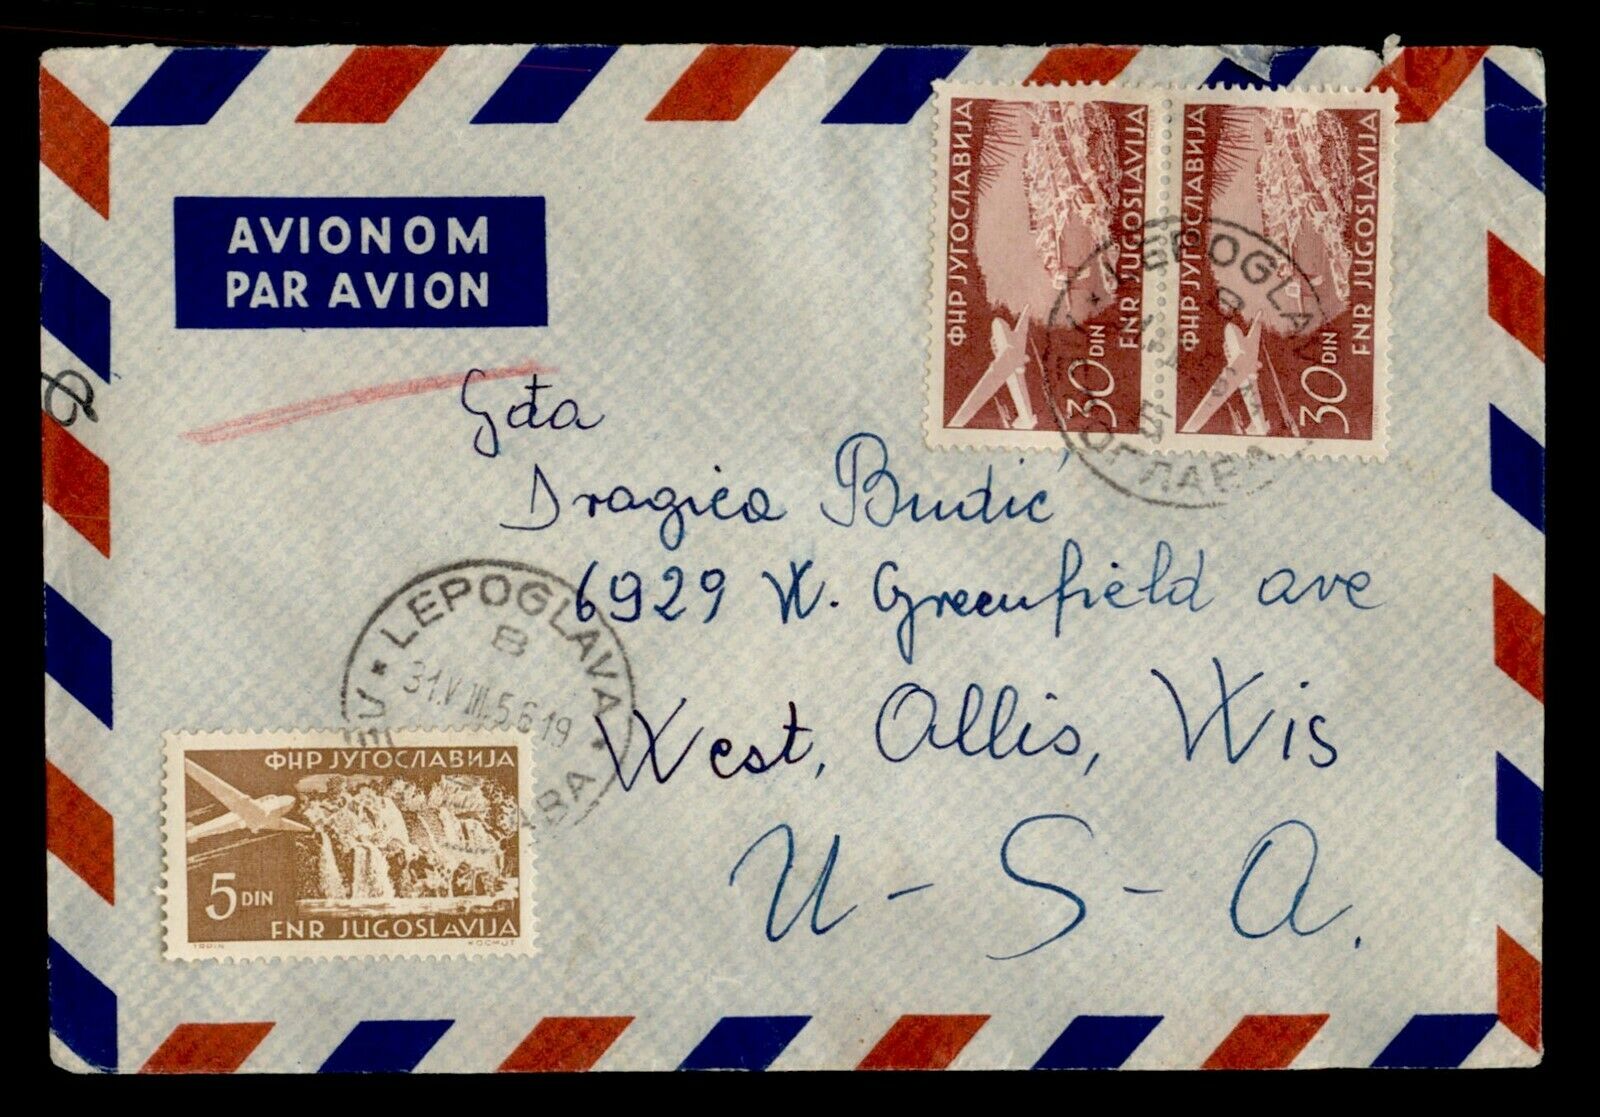 AVIONOM
PAR AVION
ФНР ЈУГОСЛАВИЈА
30 DIN
FNR JUGOSLAVIJA
ФНР ЈУГОСЛАВИЈА
30 DIN
FNR JUGOSLAVIJA
Gđa
Dragica Budić
6929 W. Greenfield ave
West, Allis, Wis
U-S-A.
LEPOGLAVA
B
31.VIII.56 19
ФНР ЈУГОСЛАВИЈА
5 DIN
FNR JUGOSLAVIJA